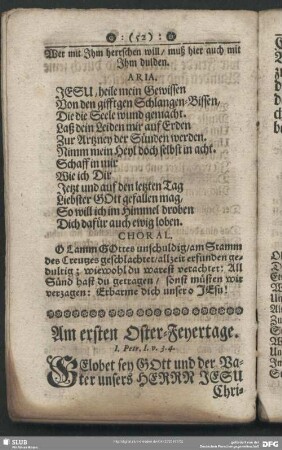 : (52) :
Wer mit Jhm herrschen will / muß hier auch mit
Jhm dulden.
ARIA.
JESU, heile mein Gewissen
Von den gifftgen Schlangen-Bissen,
Die die Seele wund gemacht.
Laß dein Leiden mir auf Erden
Zur Artzney der Sünden werden.
Nimm mein Heyl doch selbst in acht.
Schaff in mir
Wie ich Dir
Jetzt und auf den letzten Tag
Liebster GOtt gefallen mag.
So will ich im Himmel droben
Dich dafür auch ewig loben.
CHORAL.
O Lamm GOttes unschuldig / am Stamm
des Creutzes geschlachtet / allzeit erfunden ge-
dultig ; wiewohl du warest verachtet: All
Sünd hast du getragen / sonst müsten wir
verzagen: Erbarme dich unser o JEsu!
Am ersten Oster-Feyertage.
I. Petr. I. v. 3. 4.
GElobet sey GOtt und der Va-
ter unsers HERRN JESU
Chri-
SLUB
DFG